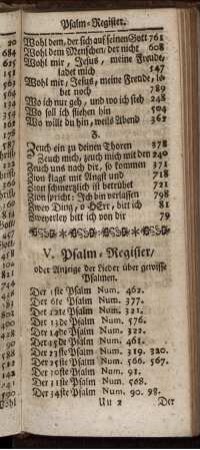 Psalm-Register.
Wohl dem, der sich auf seinen Gott 761
Wohl dem Menschen, der nicht 608
Wohl mir, Jesus, meine Freude,
ladet mich 547
Wohl mir, Jesus, meine Freude, le-
bet noch 789
Wo ich nur geh, und wo ich steh 248
Wo soll ich fliehen hin 504
Wo willt du hin, weils Abend 362
Z.
Zeuch ein zu deinen Thoren 378
Zeuch mich, zeuch mich mit den 240
Zeuch uns nach dir, so kommen 371
Zion klagt mit Angst und 718
Zion schmerzlich ist betrübet 721
Zion spricht: Ich bin verlassen 798
Zwey Ding, o HErr, bitt ich 81
Zweyerley bitt ich von dir 79
V. Psalm-Register,
oder Anzeige der Lieder über gewisse
Psalmen.
Der 1ste Psalm Num. 462.
Der 6te Psalm Num. 377.
Der 12te Psalm Num. 321.
Der 13de Psalm Num. 576.
Der 14de Psalm Num. 322.
Der 15de Psalm Num. 461.
Der 23ste Psalm Num. 319. 320.
Der 25ste Psalm Num. 566. 567.
Der 30ste Psalm Num. 91.
Der 31ste Psalm Num. 568.
Der 34ste Psalm Num. 90. 98.
Uu 2 Der